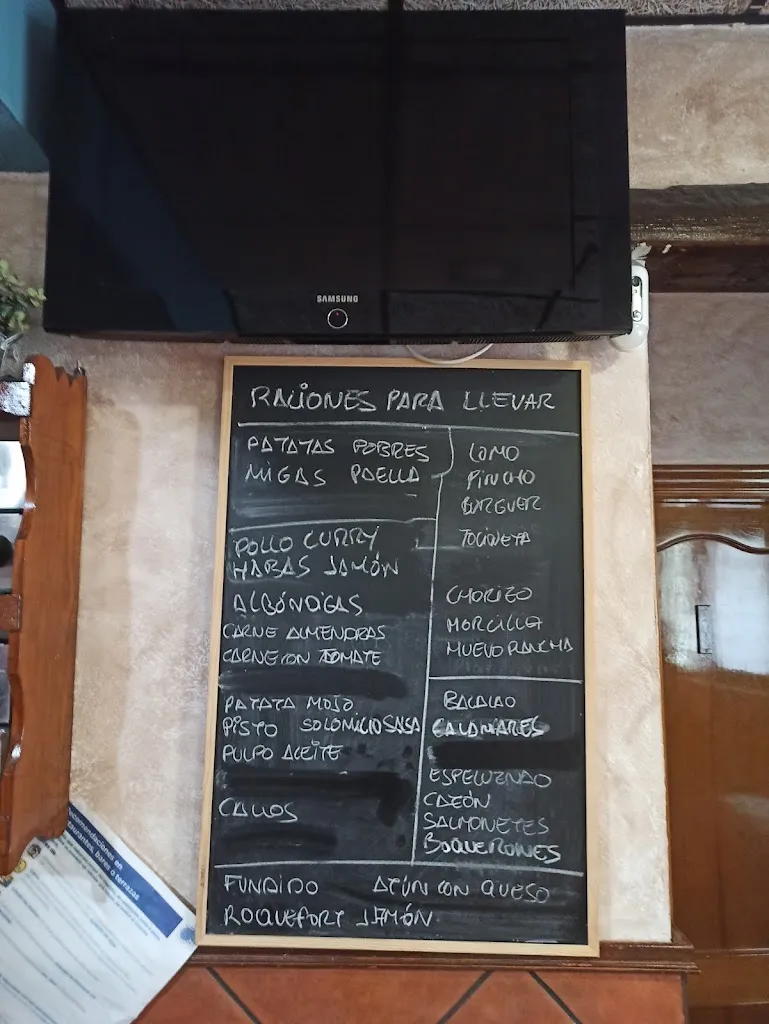 SAMSUNG
RACIONES PARA LLEVAR
PATATAS POBRES
MIGAS PAELLA
POLLO CURRY
HABAS JAMÓN
ALBÓNDIGAS
CARNE ALMENDRAS
CARNE CON TOMATE
PATATA MOJO
PISTO SOLOMILLO SALSA
PULPO ACEITE
CALLOS
LOMO
PINCHO
BURGUER
TOCINETA
CHORIZO
MORCILLA
HUEVO RANCHA
BACALAO
CALAMARES
CAZÓN
SALMONETES
BOQUERONES
FUNDIDO ATÚN CON QUESO
ROQUEFORT JAMÓN
ecomendaciones en
taurantes, bares o terrazas